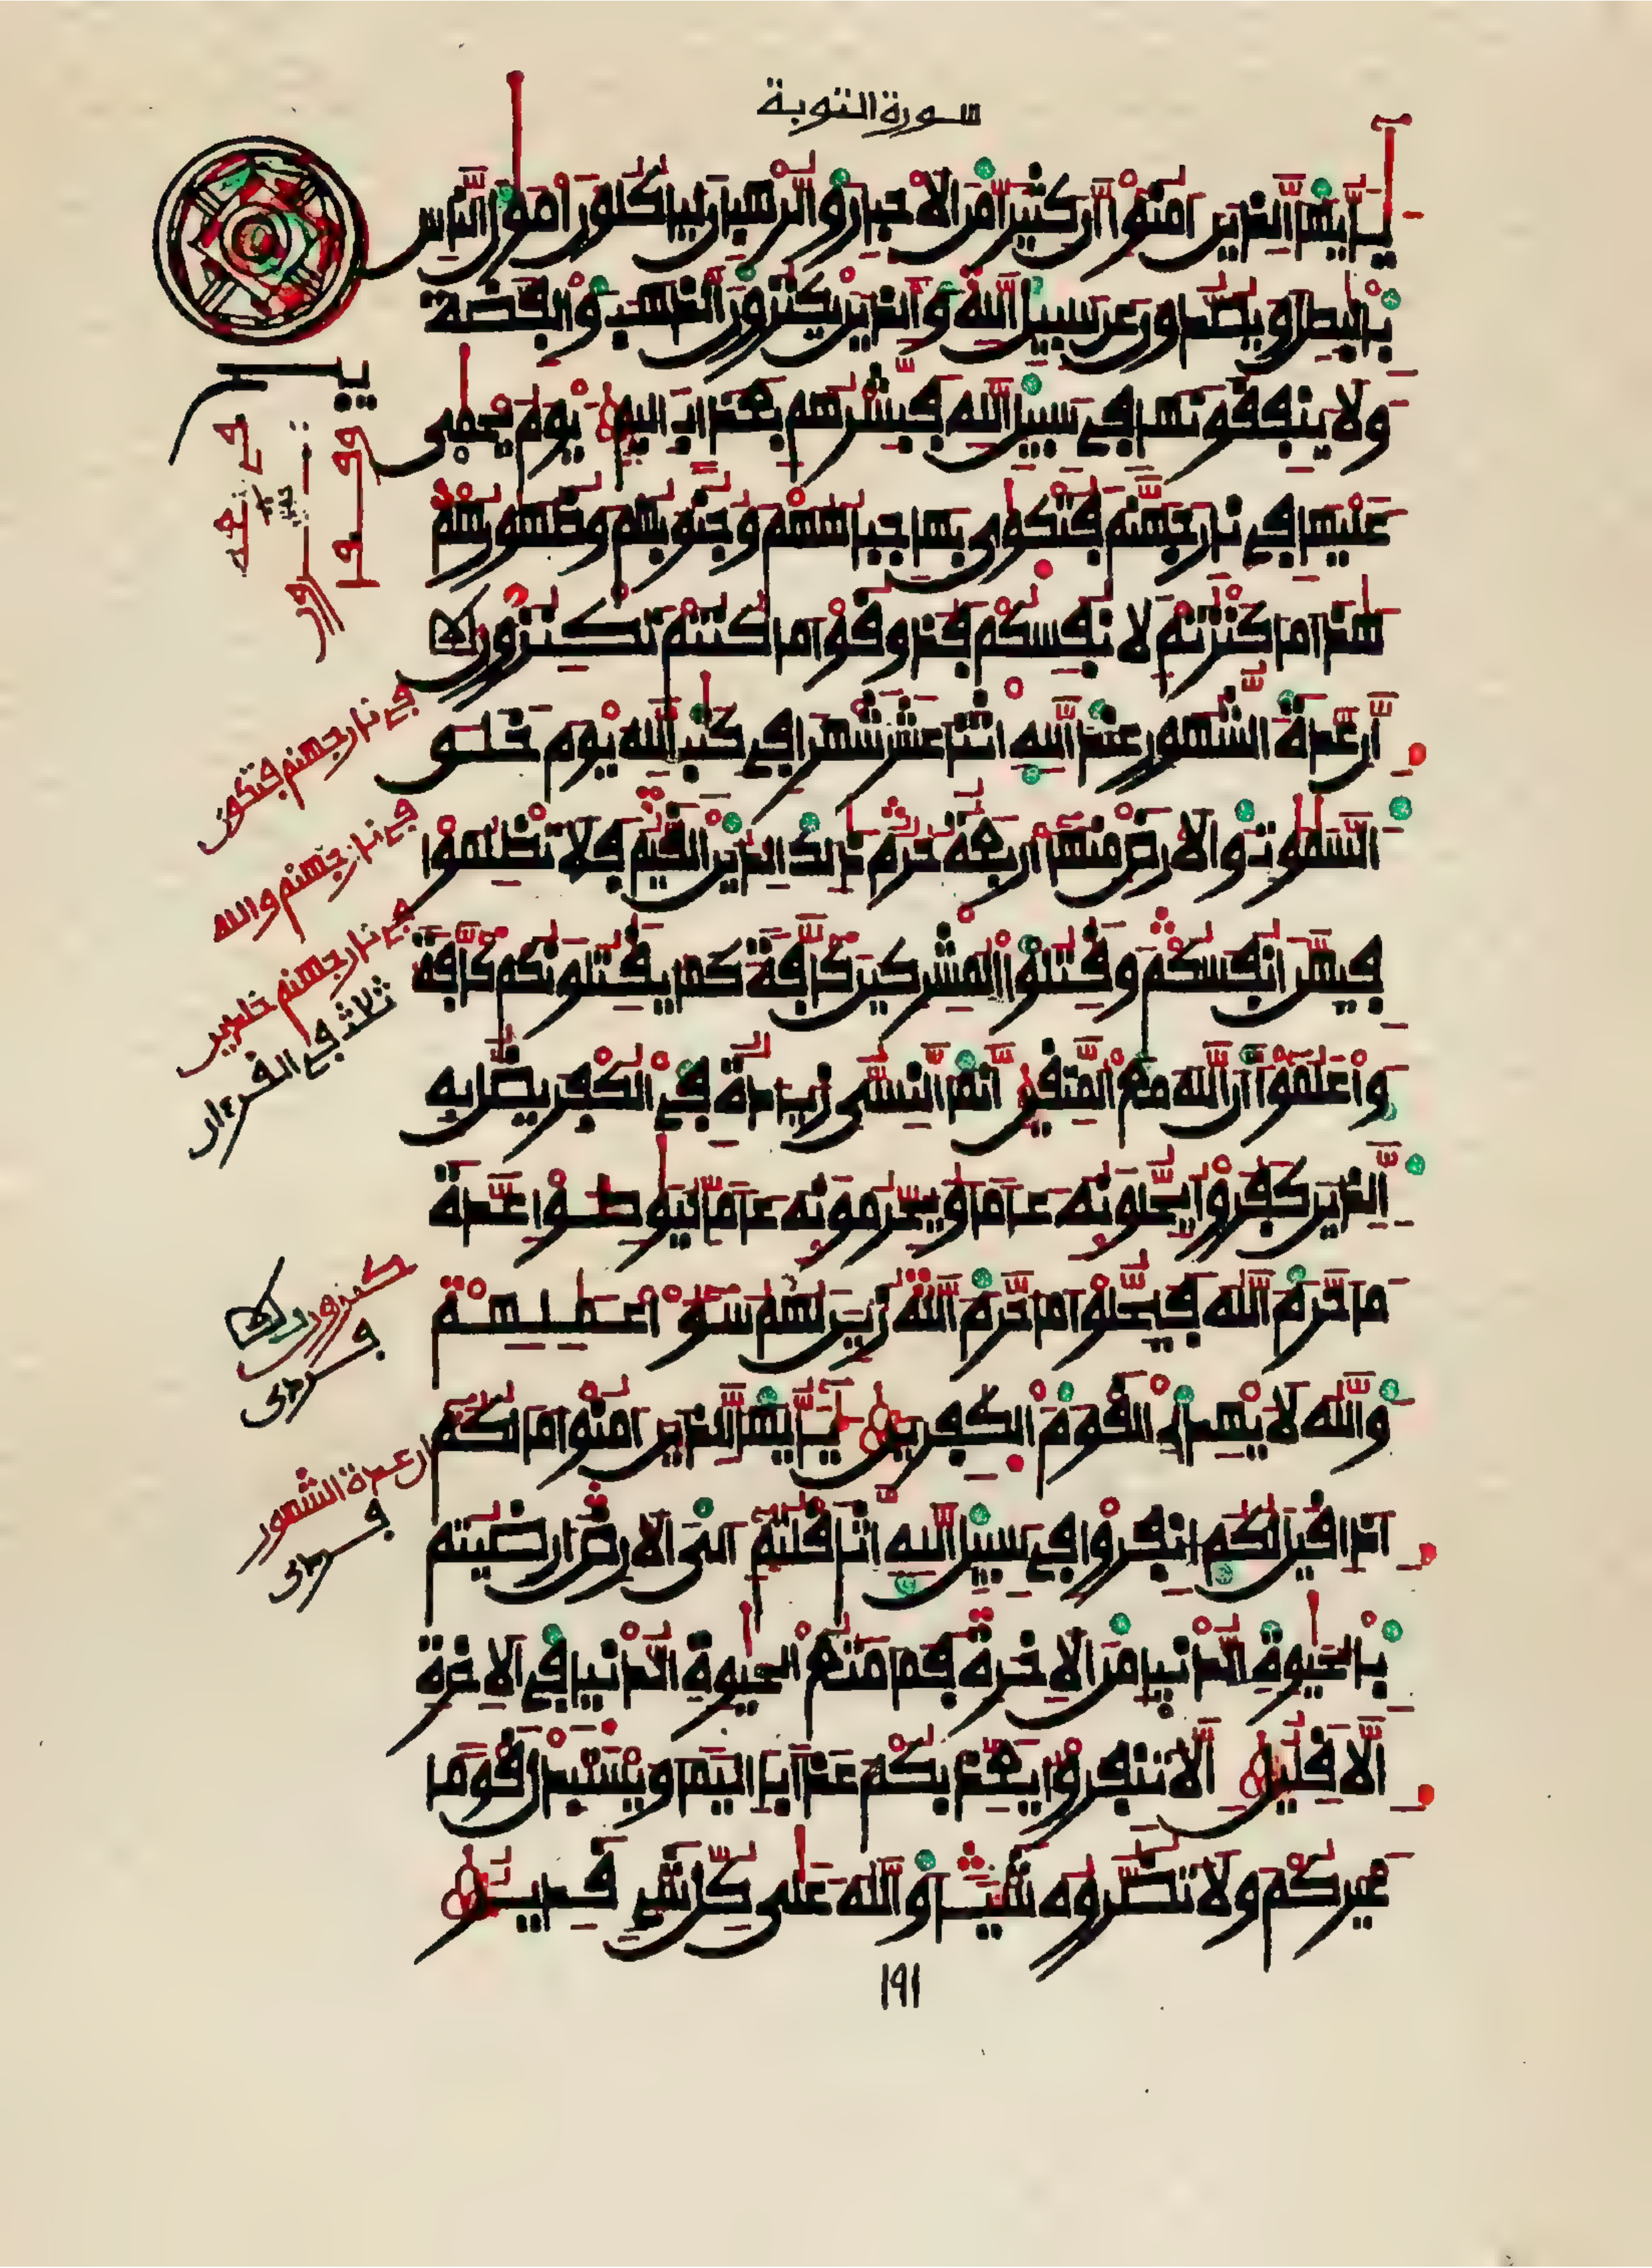 سورة التوبة
يٰأيها الذين ءامنوا إن كثيرا من الاحبار والرهبان لياكلون أموٰل الناس
بالبٰطل ويصدون عن سبيل الله والذين يكنزون الذهب والفضة
ولا ينفقونها في سبيل الله فبشرهم بعذاب اليم يوم يحمى
عليها في نار جهنم فتكوى بها جباههم وجنوبهم وظهورهم
هٰذا ما كنزتم لانفسكم فذوقوا ما كنتم تكنزون
إن عدة الشهور عند الله اثنا عشر شهرا في كتٰب الله يوم خلق
السمٰوٰت والارض منها أربعة حرم ذٰلك الدين القيم فلا تظلموا
فيهن أنفسكم وقٰتلوا المشركين كافة كما يقٰتلونكم كافة
واعلموا أن الله مع المتقين إنما النسي زيادة في الكفر يضل به
الذين كفروا يحلونه عاما ويحرمونه عاما ليواطـوا عدة
ما حرم الله فيحلوا ما حرم الله زين لهم سوء اعمٰلهم
والله لا يهدي القوم الكٰفرين يٰأيها الذين ءامنوا ما لكم
إذا قيل لكم انفروا في سبيل الله اثاقلتم إلى الارض أرضيتم
بالحيوٰة الدنيا من الاخرة فما متٰع الحيوٰة الدنيا في الاخرة
إلا قليل إلا تنفروا يعذبكم عذابا اليما ويستبدل قوما
غيركم ولا تضروه شيـا والله على كل شيء قدير
في نار جهنم فتكوى
في نار جهنم والله
في نار جهنم خلدين
ثلاث في القرءان
ان عدة الشهور
١٩١